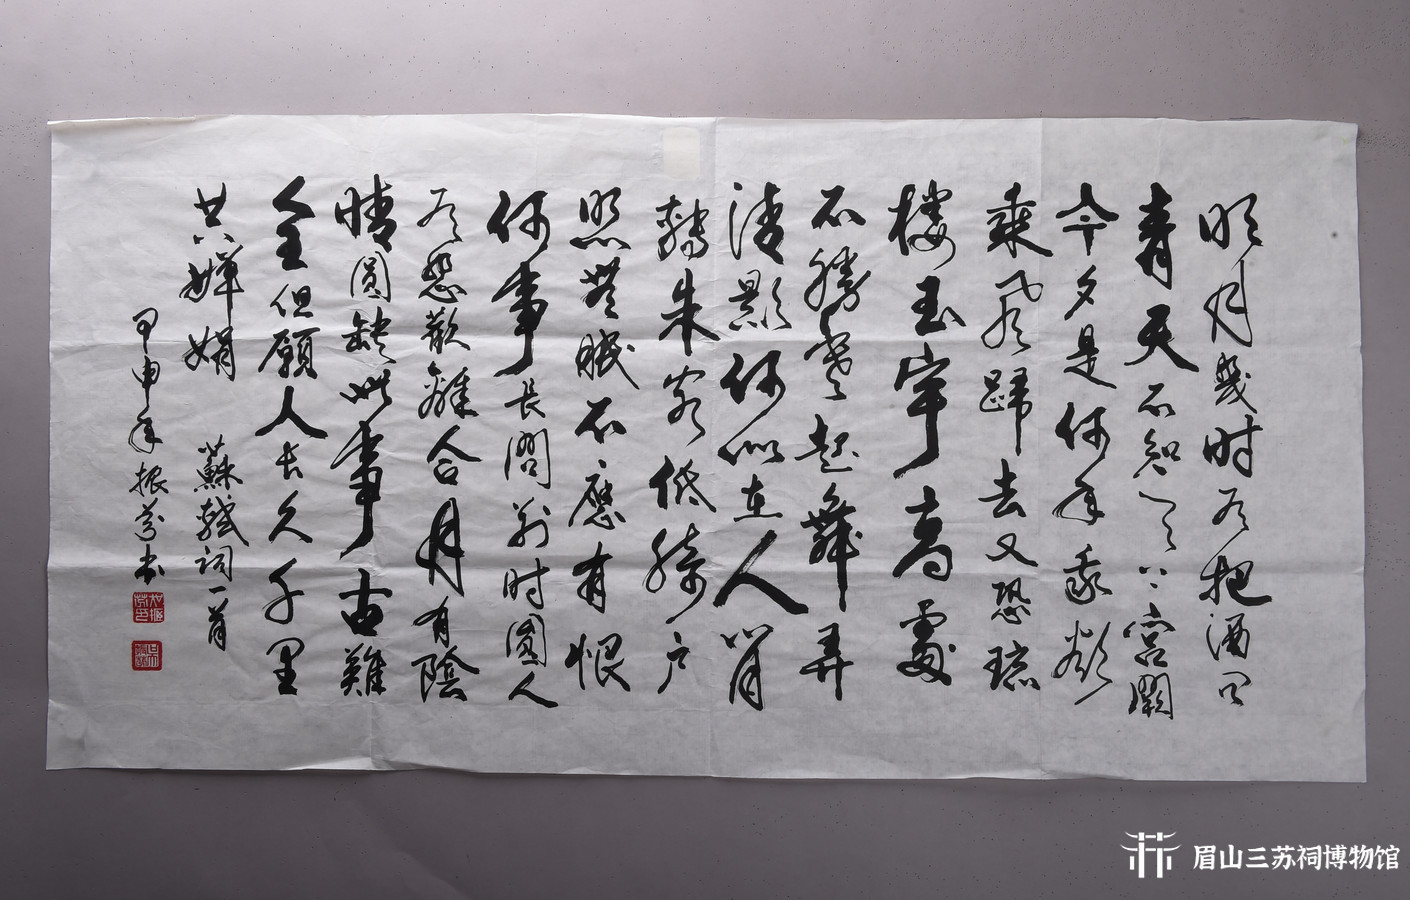 明月幾时有把酒问
青天不知天上宫闕
今夕是何年我欲
乘风歸去又恐琼
楼玉宇高處
不勝寒起舞弄
清影何似在人间
转朱阁低绮户
照無眠不應有恨
何事長向别时圓人
有悲歡離合月有陰
晴圓缺此事古難
全但願人长久千里
共婵娟 蘇轼词一首
甲申年振芬书
眉山三苏祠博物馆